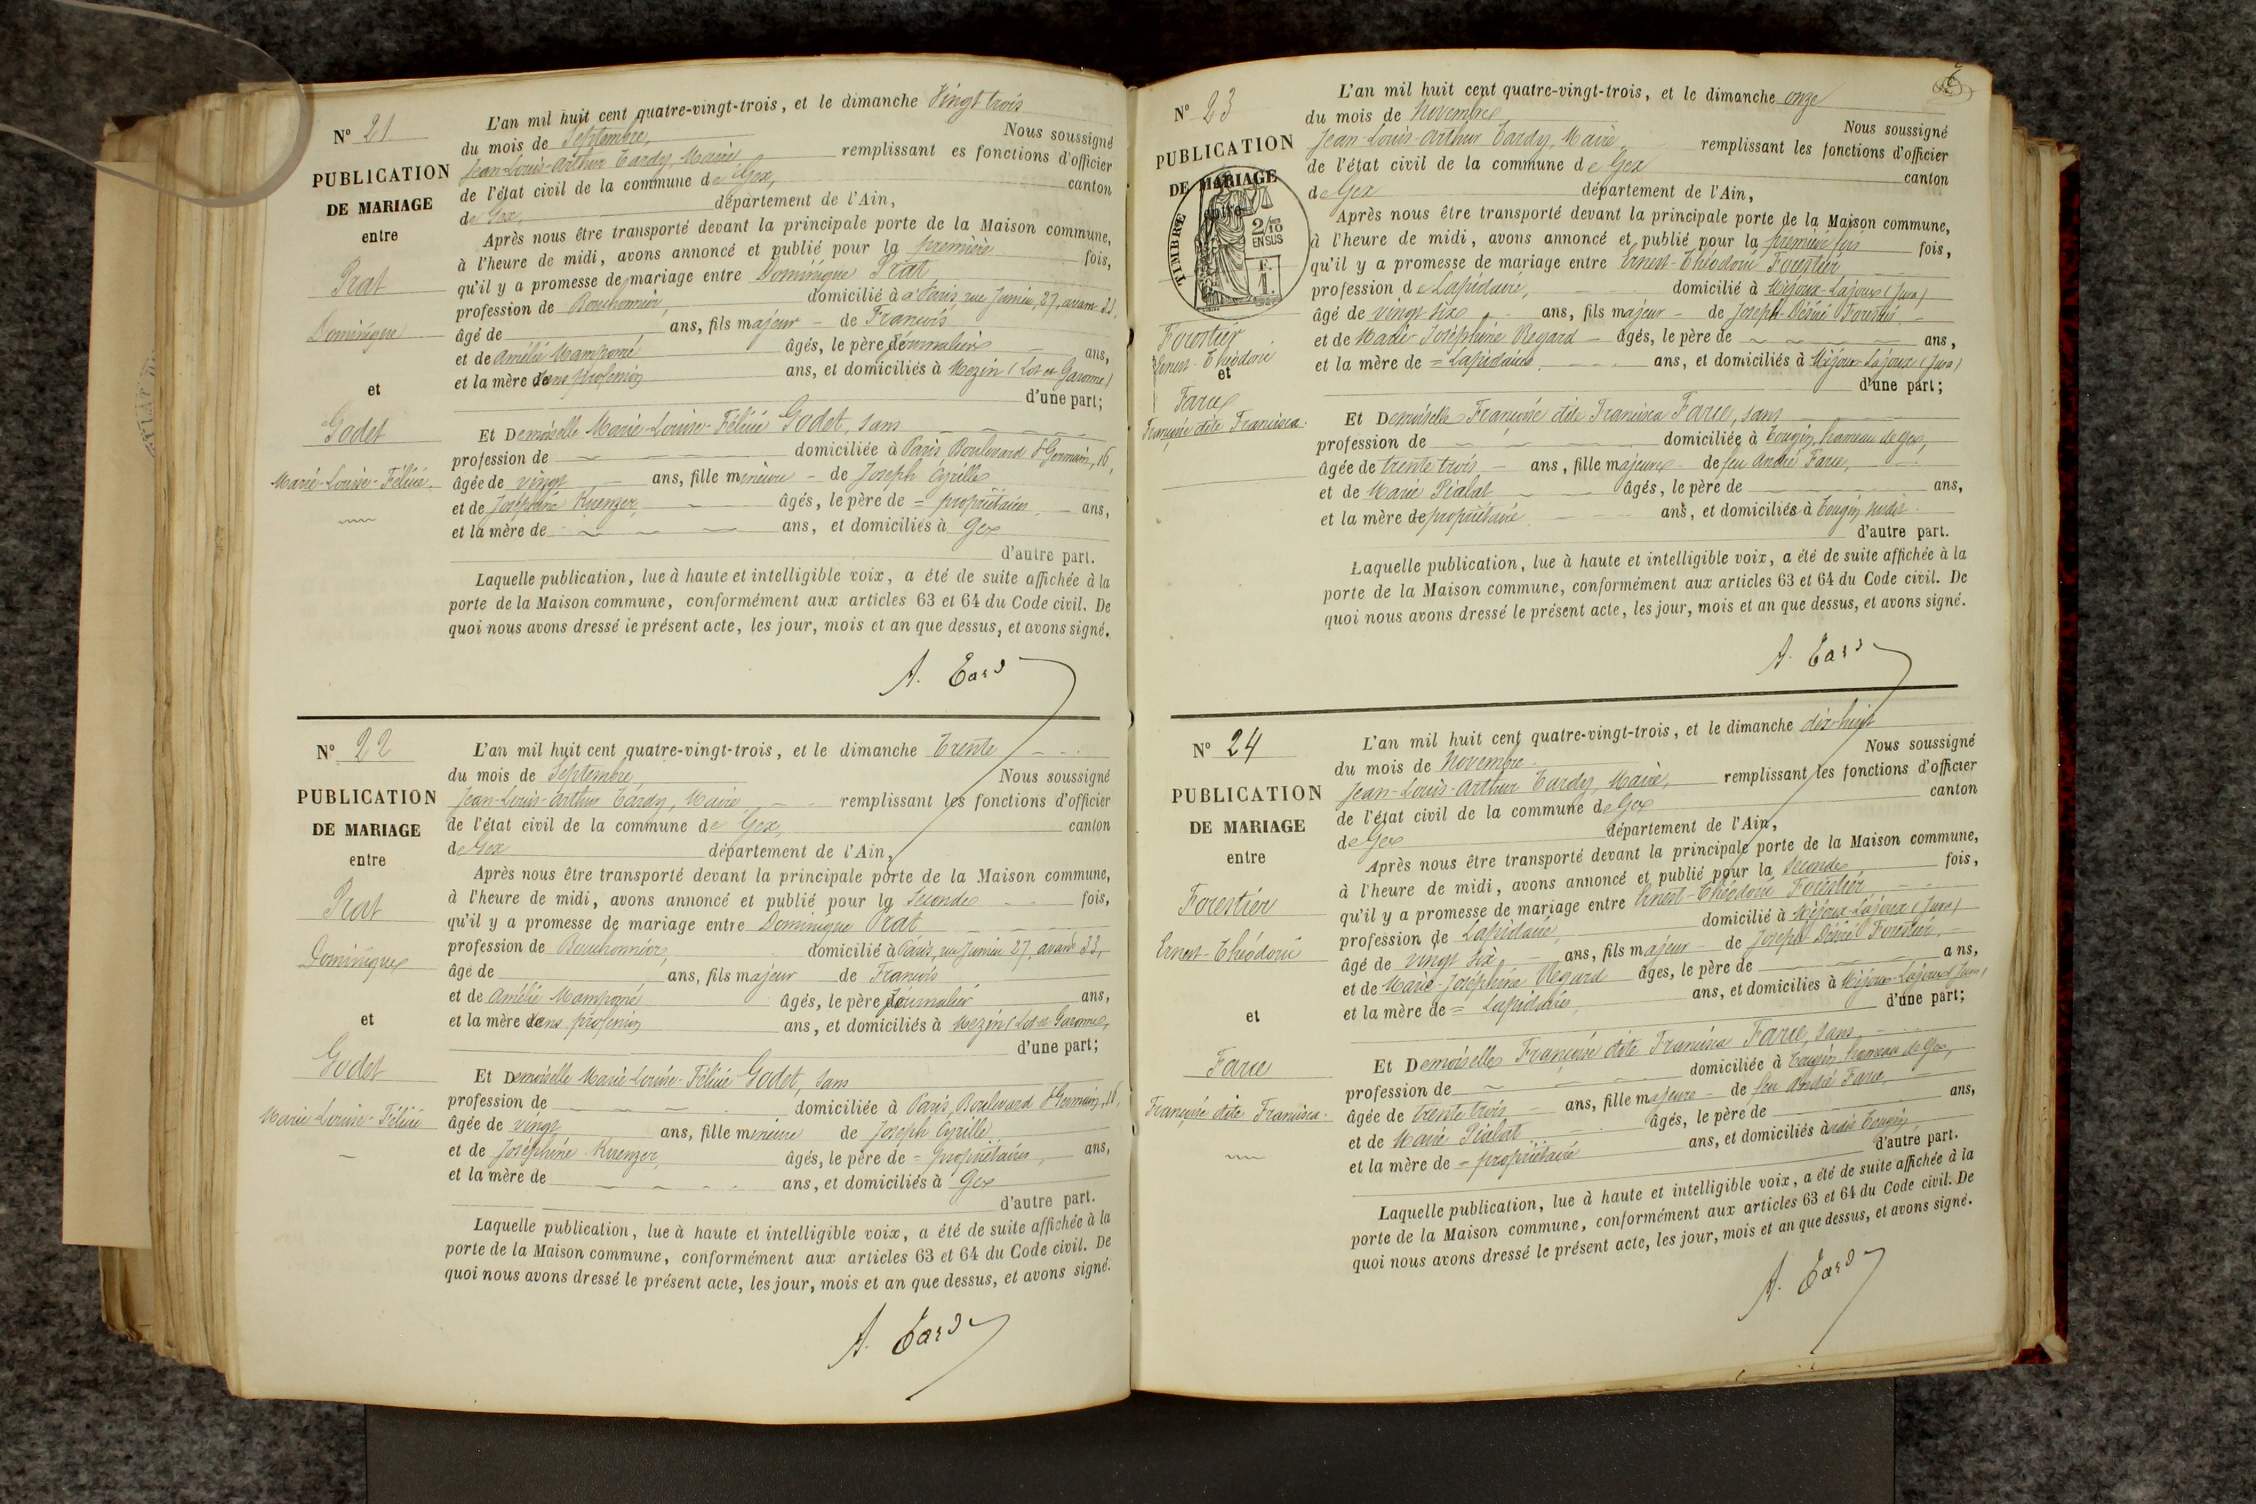 N° 21
PUBLICATION
DE MARIAGE
entre
Prat
Dominique
et
Godet
Marie-Louise-Félicie
L'an mil huit cent quatre-vingt-trois, et le dimanche vingt trois
du mois de Septembre, Nous soussigné
Jean-Louis-Arthur Tardy, Maire remplissant es fonctions d'officier
de l'état civil de la commune de Gex, canton
de Gex, département de l'Ain,
Après nous être transporté devant la principale porte de la Maison commune,
à l'heure de midi, avons annoncé et publié pour la première fois,
qu'il y a promesse de mariage entre Dominique Prat
profession de Bouchonnier, domicilié à à Paris, rue 27, avant 21,
âgé de ans, fils majeur de François
et de Amélie âgés, le père de journalier ans,
et la mère de sans profession ans, et domiciliés à Mezin (Lot et Garonne)
d'une part;
Et Demoiselle Marie-Louise-Félicie Godet, sans
profession de domiciliée à Paris Boulevard St Germain, 16,
âgée de vingt ans, fille mineure de Joseph Cyrille
et de Joséphine Kuenzer, âgés, le père de = propriétaires ans,
et la mère de ans, et domiciliés à Gex
d'autre part.
Laquelle publication, lue à haute et intelligible voix, a été de suite affichée à la
porte de la Maison commune, conformément aux articles 63 et 64 du Code civil. De
quoi nous avons dressé le présent acte, les jour, mois et an que dessus, et avons signé.
A. Tardy
N° 22
PUBLICATION
DE MARIAGE
entre
Prat
Dominique
et
Godet
Marie Louise-Félicie
L'an mil huit cent quatre-vingt-trois, et le dimanche Trente
du mois de Septembre Nous soussigné
Jean-Louis-Arthur Tardy, Maire remplissant les fonctions d'officier
de l'état civil de la commune de Gex, canton
de Gex département de l'Ain,
Après nous être transporté devant la principale porte de la Maison commune,
à l'heure de midi, avons annoncé et publié pour la Seconde fois,
qu'il y a promesse de mariage entre Dominique Prat
profession de Bouchonnier, domicilié à Paris, rue 27, avant 22,
âgé de ans, fils majeur de François
et de Amélie âgés, le père de journalier ans,
et la mère de sans profession ans, et domiciliés à Mezin (Lot et Garonne,
d'une part;
Et Demoiselle Marie-Louise-Félicie Godet, sans
profession de domiciliée à Paris, Boulevard St Germain, 16,
âgée de vingt ans, fille mineure de Joseph Cyrille
et de Joséphine Kuenzer, âgés, le père de = propriétaires, ans,
et la mère de ans, et domiciliés à Gex
d'autre part.
Laquelle publication, lue à haute et intelligible voix, a été de suite affichée à la
porte de la Maison commune, conformément aux articles 63 et 64 du Code civil. De
quoi nous avons dressé le présent acte, les jour, mois et an que dessus, et avons signé.
A. Tardy
N° 23
PUBLICATION
DE MARIAGE
entre
TIMBRE
2/10
EN SUS
F.
1.
Forestier
Ernest-Théodore
et
Farce
Françoise dite Francisca
L'an mil huit cent quatre-vingt-trois, et le dimanche onze
du mois de Novembre Nous soussigné
Jean-Louis-Arthur Tardy, Maire remplissant les fonctions d'officier
de l'état civil de la commune de Gex canton
de Gex département de l'Ain,
Après nous être transporté devant la principale porte de la Maison commune,
à l'heure de midi, avons annoncé et publié pour la première fois fois,
qu'il y a promesse de mariage entre Ernest-Théodore Forestier
profession de Lapidaire, domicilié à Mijoux-Lajoux (Jura)
âgé de vingt six ans, fils majeur de Joseph-Désiré Forestier
et de Marie-Joséphine Regard âgés, le père de ans,
et la mère de = Lapidaires ans, et domiciliés à Mijoux Lajoux (Jura)
d'une part;
Et Demoiselle Françoise dite Francisca Farce, sans
profession de domiciliée à Tougin, hameau de Gex,
âgée de trente trois ans, fille majeure de feu André Farce,
et de Marie Pialat âgés, le père de ans,
et la mère de propriétaire ans, et domiciliés à Tougin susdit
d'autre part.
Laquelle publication, lue à haute et intelligible voix, a été de suite affichée à la
porte de la Maison commune, conformément aux articles 63 et 64 du Code civil. De
quoi nous avons dressé le présent acte, les jour, mois et an que dessus, et avons signé.
A. Tardy
N° 24
PUBLICATION
DE MARIAGE
entre
Forestier
Ernest-Théodore
et
Farce
Françoise dite Francisca
L'an mil huit cent quatre-vingt-trois, et le dimanche dix-huit
du mois de Novembre Nous soussigné
Jean-Louis-Arthur Tardy, Maire, remplissant les fonctions d'officier
de l'état civil de la commune de Gex canton
de Gex département de l'Ain,
Après nous être transporté devant la principale porte de la Maison commune,
à l'heure de midi, avons annoncé et publié pour la Seconde fois,
qu'il y a promesse de mariage entre Ernest-Théodore Forestier
profession de Lapidaire, domicilié à Mijoux Lajoux (Jura)
âgé de vingt six, ans, fils majeur de Joseph Désiré Forestier,
et de Marie-Joséphine Regard âgés, le père de ans,
et la mère de = Lapidaires, ans, et domiciliés à Mijoux-Lajoux (Jura)
d'une part;
Et Demoiselle Françoise dite Francisca Farce, sans
profession de domiciliée à Tougin, hameau de Gex,
âgée de trente trois ans, fille majeure de feu André Farce,
et de Marie Pialat âgés, le père de ans,
et la mère de = propriétaire ans, et domiciliés à susdit Tougin,
d'autre part.
Laquelle publication, lue à haute et intelligible voix, a été de suite affichée à la
porte de la Maison commune, conformément aux articles 63 et 64 du Code civil. De
quoi nous avons dressé le présent acte, les jour, mois et an que dessus, et avons signé.
A. Tardy